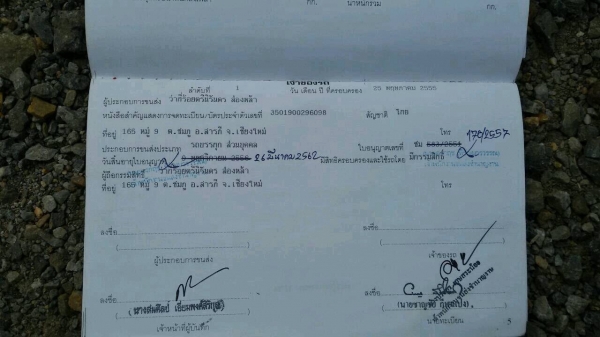 กก.
น้ำหนักรวม
กก.
เจ้าของรถ
ลำดับที่ 1 วัน เดือน ปี ที่ครอบครอง 25 พฤษภาคม 2555
ผู้ประกอบการขนส่ง ว่าที่ร้อยตรี
หนังสือสำคัญแสดงการจดทะเบียน/บัตรประจำตัวเลขที่ 3501900296098 สัญชาติ ไทย
ที่อยู่ 165 หมู่ 9 ต.ชมภู อ.สารภี จ.เชียงใหม่ โทร
170/2557
ประกอบการขนส่งประเภท รถบรรทุก ส่วนบุคคล ใบอนุญาตเลขที่ ชม
วันสิ้นอายุใบอนุญาต 26 มีนาคม 2562 มีสิทธิครอบครองและใช้รถโดย มีกรรมสิทธิ์
ผู้ถือกรรมสิทธิ์ ว่าที่ร้อยตรี
ที่อยู่ 165 หมู่ 9 ต.ชมภู อ.สารภี จ.เชียงใหม่ โทร
ลงชื่อ ลงชื่อ
ผู้ประกอบการขนส่ง เจ้าของรถ
ลงชื่อ ลงชื่อ
เจ้าหน้าที่ผู้บันทึก นายทะเบียน
3